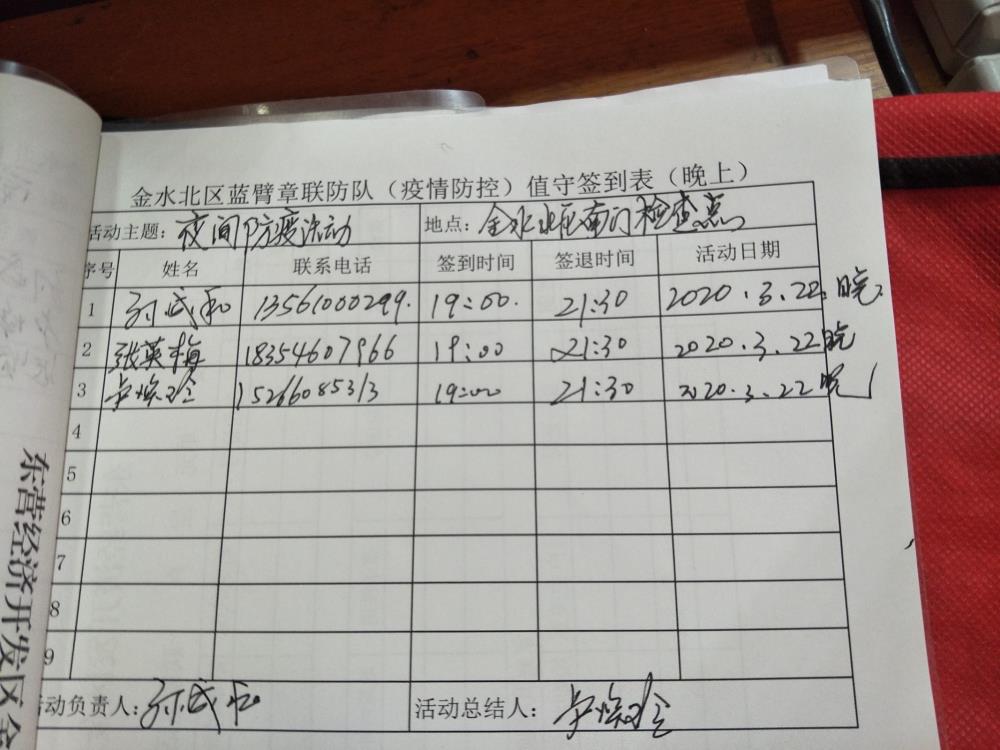 金水北区蓝臂章联防队（疫情防控）值守签到表（晚上）
活动主题：夜间防疫活动 地点：金水北区南门检查点
序号 姓名 联系电话 签到时间 签退时间 活动日期
1 孙成和 13561000299 19:00 21:30 2020.3.22 晚
2 张英梅 18354607966 19:00 21:30 2020.3.22 晚
3 15266085313 19:00 21:30 2020.3.22 晚
4
5
6
7
8
9
活动负责人：孙成和 活动总结人：
东营经济开发区金